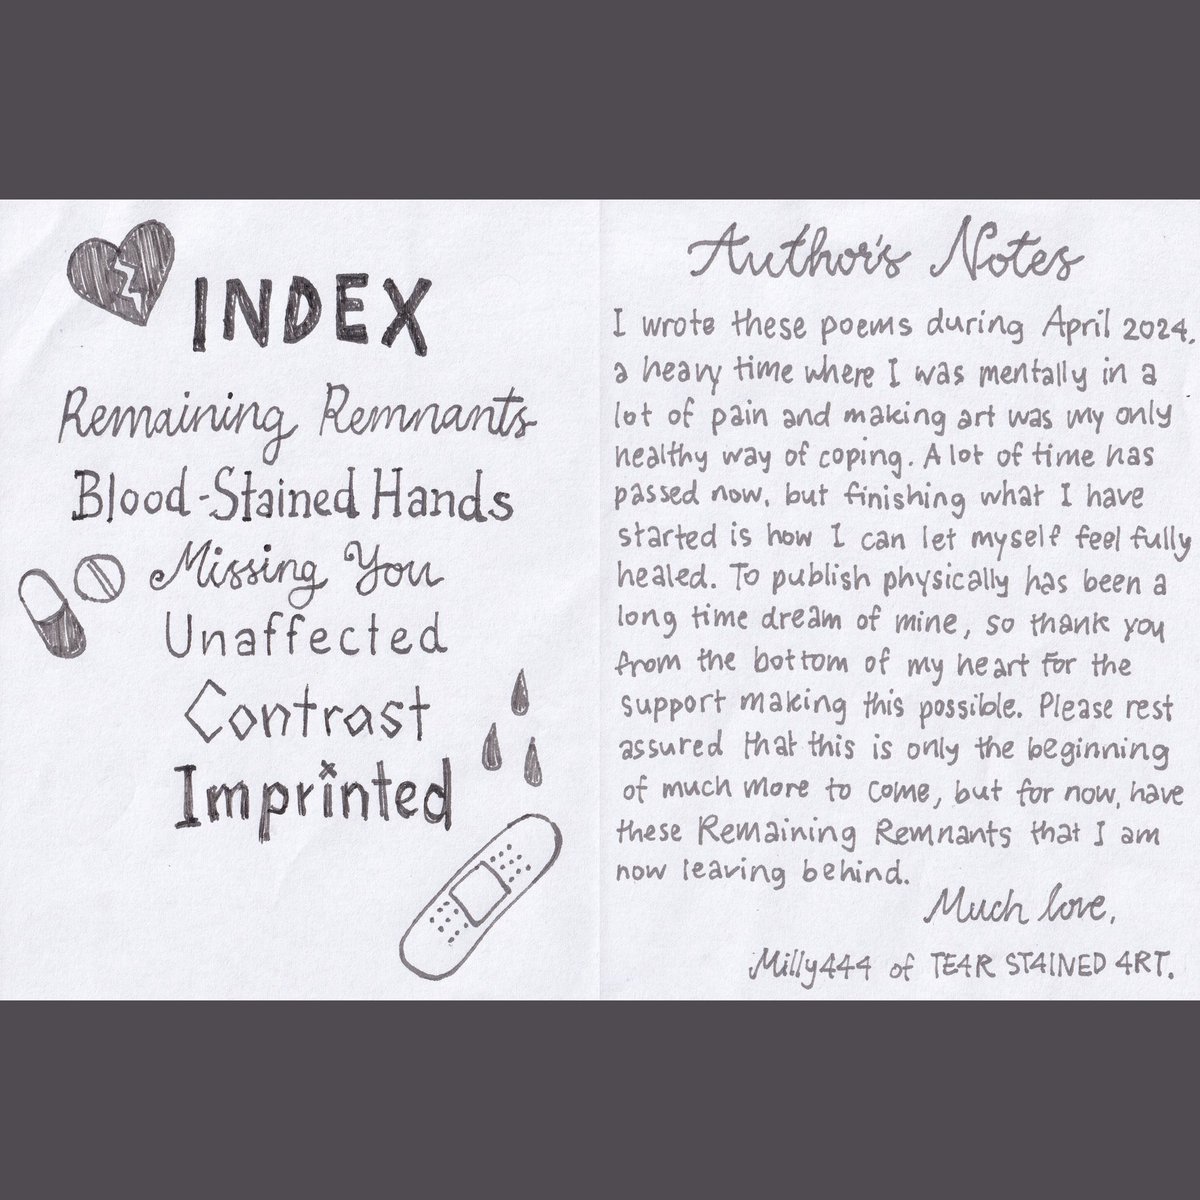 INDEX
Remaining Remnants
Blood-Stained Hands
Missing You
Unaffected
Contrast
Imprinted
Author's Notes
I wrote these poems during April 2024,
a heavy time where I was mentally in a
lot of pain and making art was my only
healthy way of coping. A lot of time has
passed now, but finishing what I have
started is how I can let myself feel fully
healed. To publish physically has been a
long time dream of mine, so thank you
from the bottom of my heart for the
support making this possible. Please rest
assured that this is only the beginning
of much more to come, but for now, have
these Remaining Remnants that I am
now leaving behind.
Much love,
Milly444 of TE4R ST4INED 4RT.